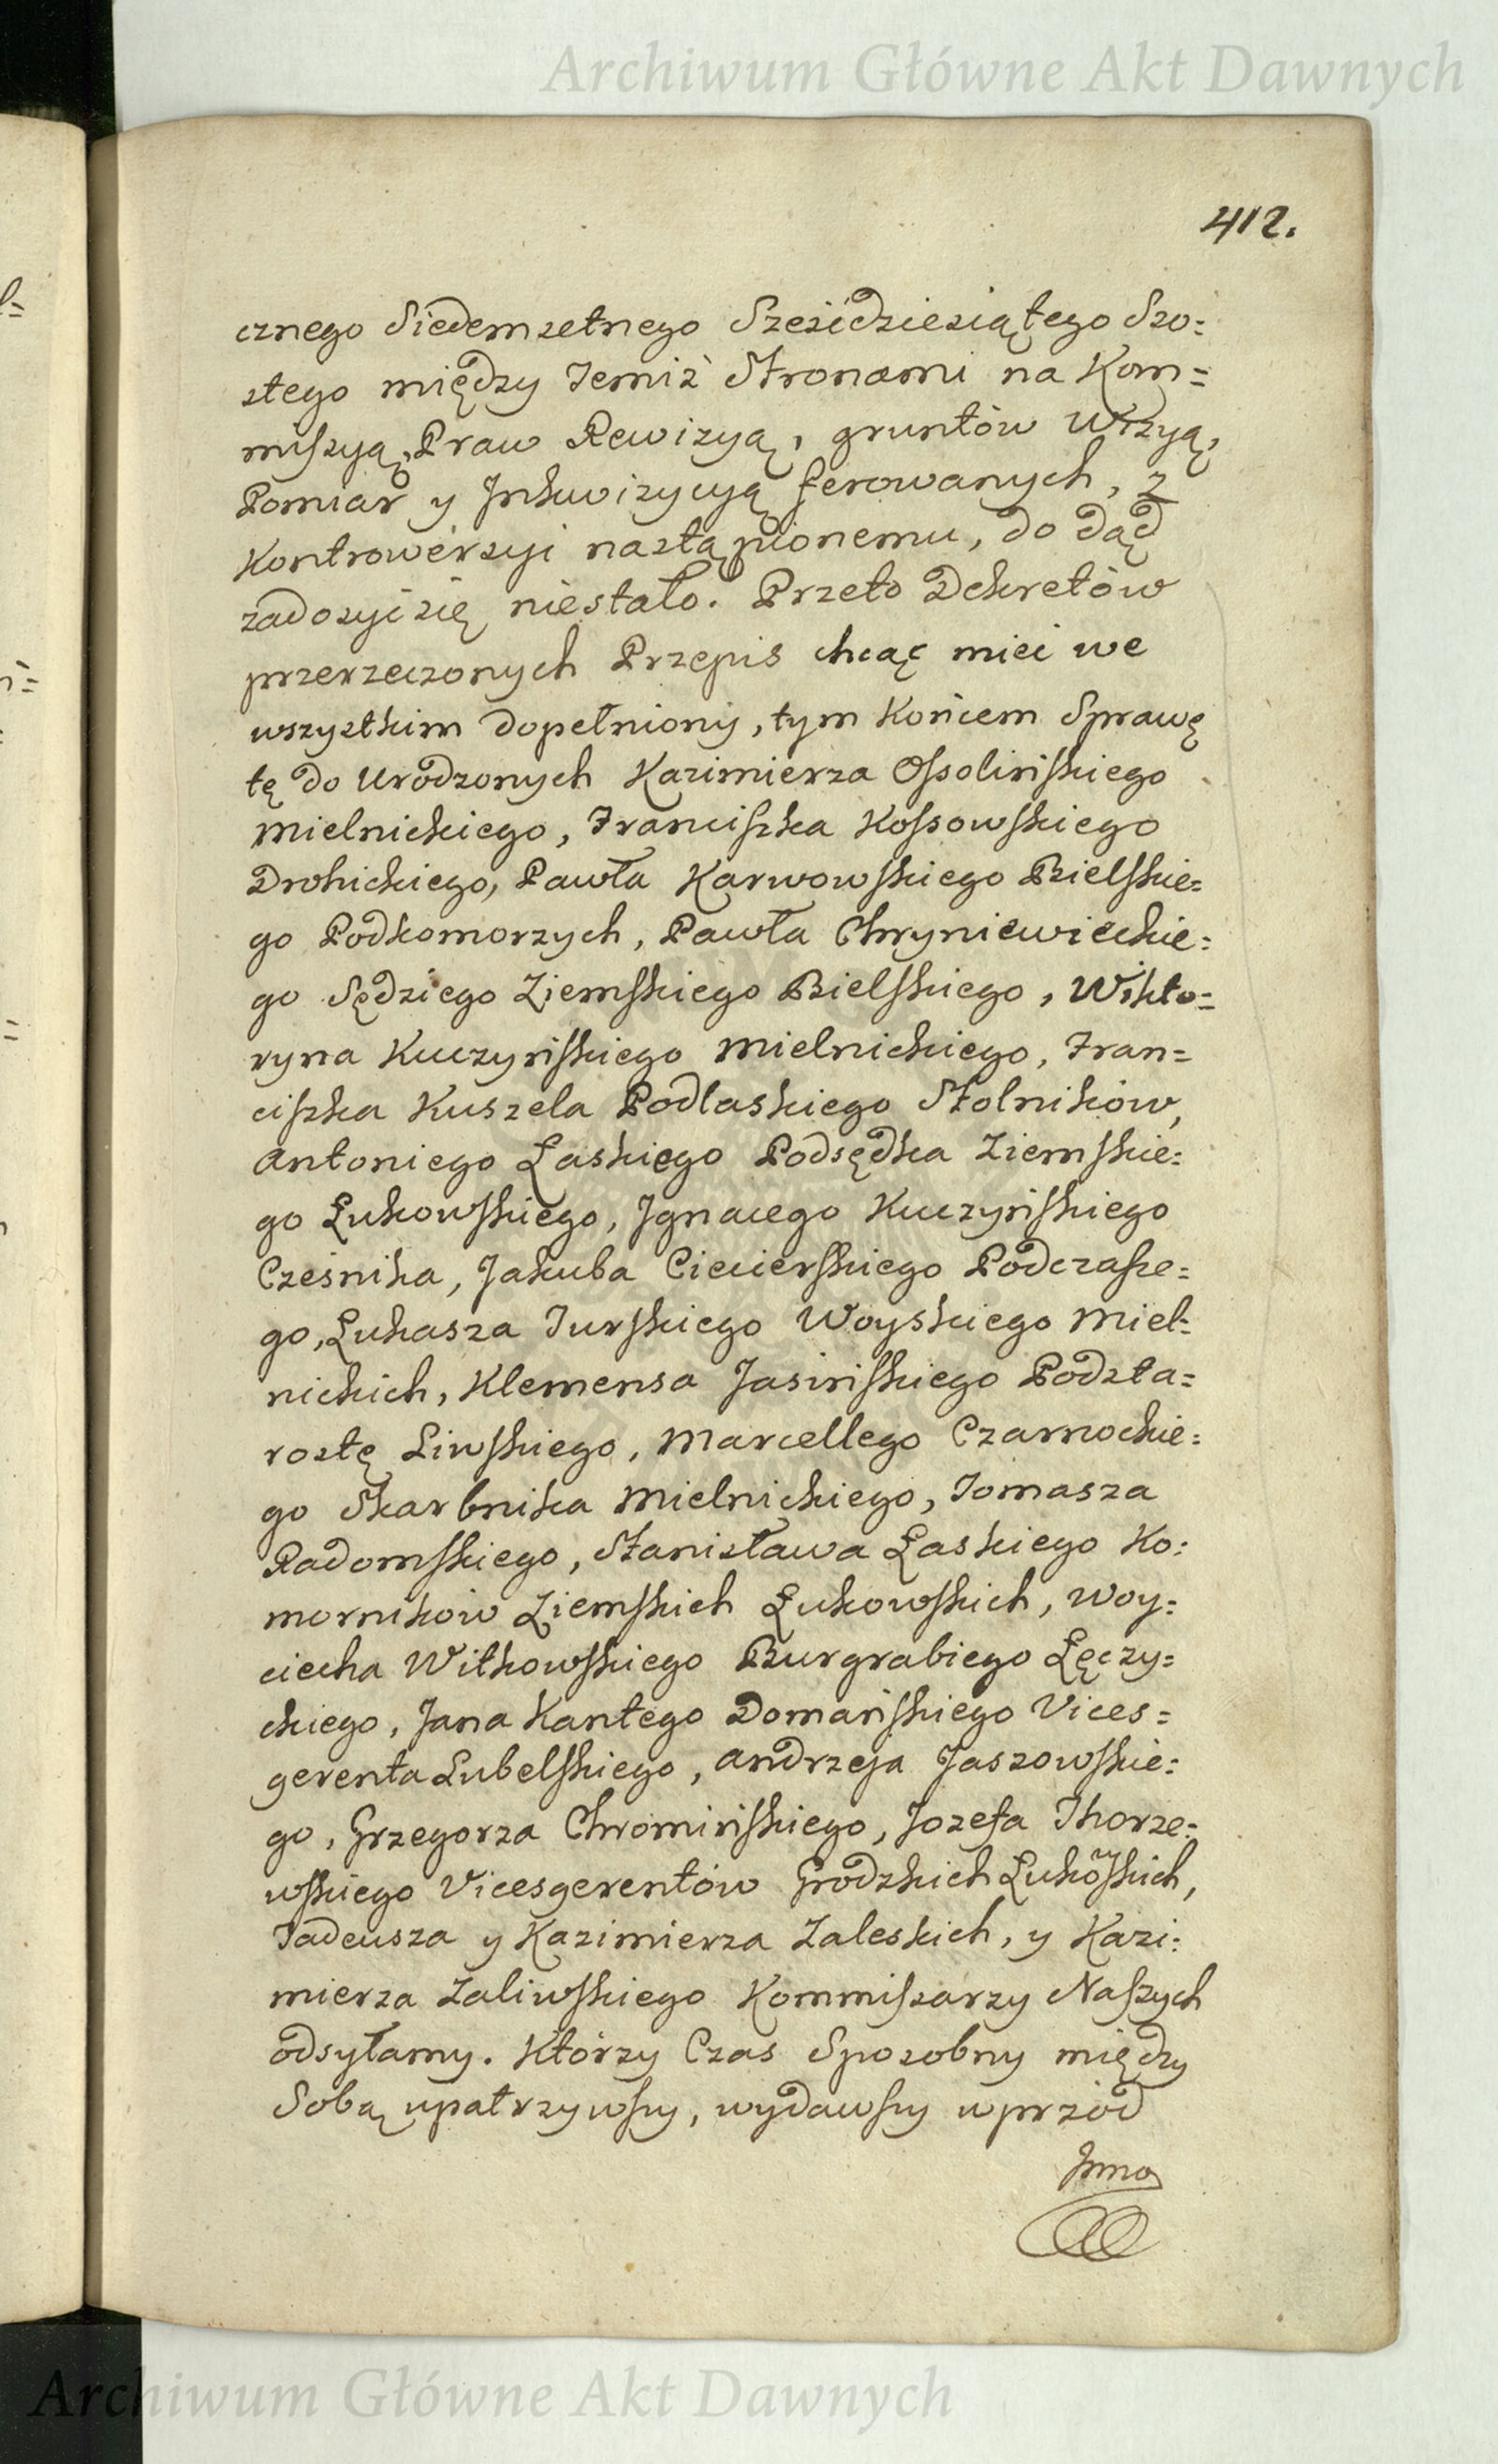 Archiwum Główne Akt Dawnych
412.
cznego Siedemsetnego Sześćdziesiątego Szo=
stego między Temiż Stronami na Kom=
missyą, Praw Rewizyą, gruntów Wizyą,
Pomiar y Inkwizycyą ferowanych, z
Kontrowersyi nastąpionemu, do dąd
zadosyć się niestało. Przeto Dekretów
przerzeczonych Przepis chcąc mieć we
wszystkim dopełniony, tym Końcem Sprawę
tę do Urodzonych Kazimierza Ossolińskiego
Mielnickiego, Franciszka Kossowskiego
Drohickiego, Pawła Karwowskiego Bielskie=
go Podkomorzych, Pawła Chryniewieckie=
go Sędziego Ziemskiego Bielskiego, Wikto=
ryna Kuczyńskiego Mielnickiego, Fran=
ciszka Kuszela Podlaskiego Stolników,
Antoniego Łaskiego Podsędka Ziemskie=
go Łukowskiego, Ignacego Kuczyńskiego
Cześnika, Jakuba Ciecierskiego Podczasze=
go, Łukasza Turskiego Woyskiego Miel=
nickich, Klemensa Jasińskiego Podsta=
rostę Liwskiego, Marcellego Czarnockie=
go Skarbnika Mielnickiego, Tomasza
Radomskiego, Stanisława Łaskiego Ko=
morników Ziemskich Łukowskich, Woy=
ciecha Witkowskiego Burgrabiego Łęczy=
ckiego, Jana Kantego Domańskiego Vices=
gerenta Lubelskiego, Andrzeja Jaszowskie=
go, Grzegorza Chromińskiego, Jozefa Thorze=
wskiego Vicesgerentów Grodzkich Łukowskich,
Tadeusza y Kazimierza Zaleskich, y Kazi=
mierza Zaliwskiego Kommissarzy Naszych
odsyłamy. Którzy Czas Sposobny między
Sobą upatrzywszy, wydawszy wprzód
Inno
Archiwum Główne Akt Dawnych